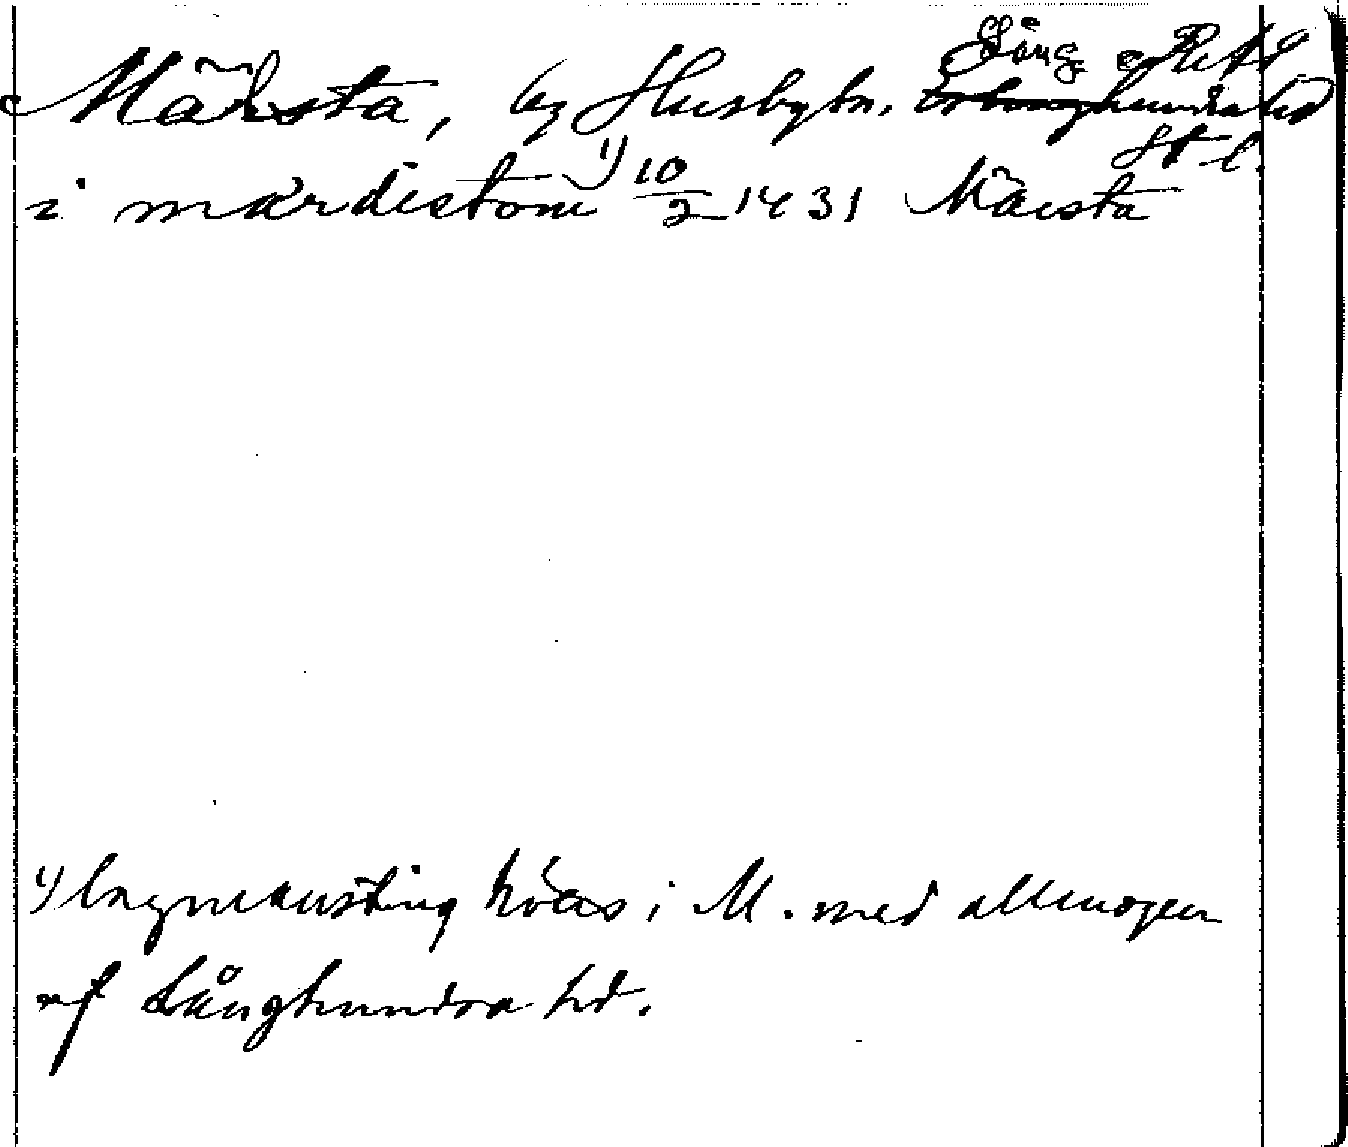 Märsta, by Husbybn. Långhundra hd
St. l.
i mærdistom 1) 10/2 1431 Märsta
1) lagmansting höas i M. med allmogen
af Långhundra hd.